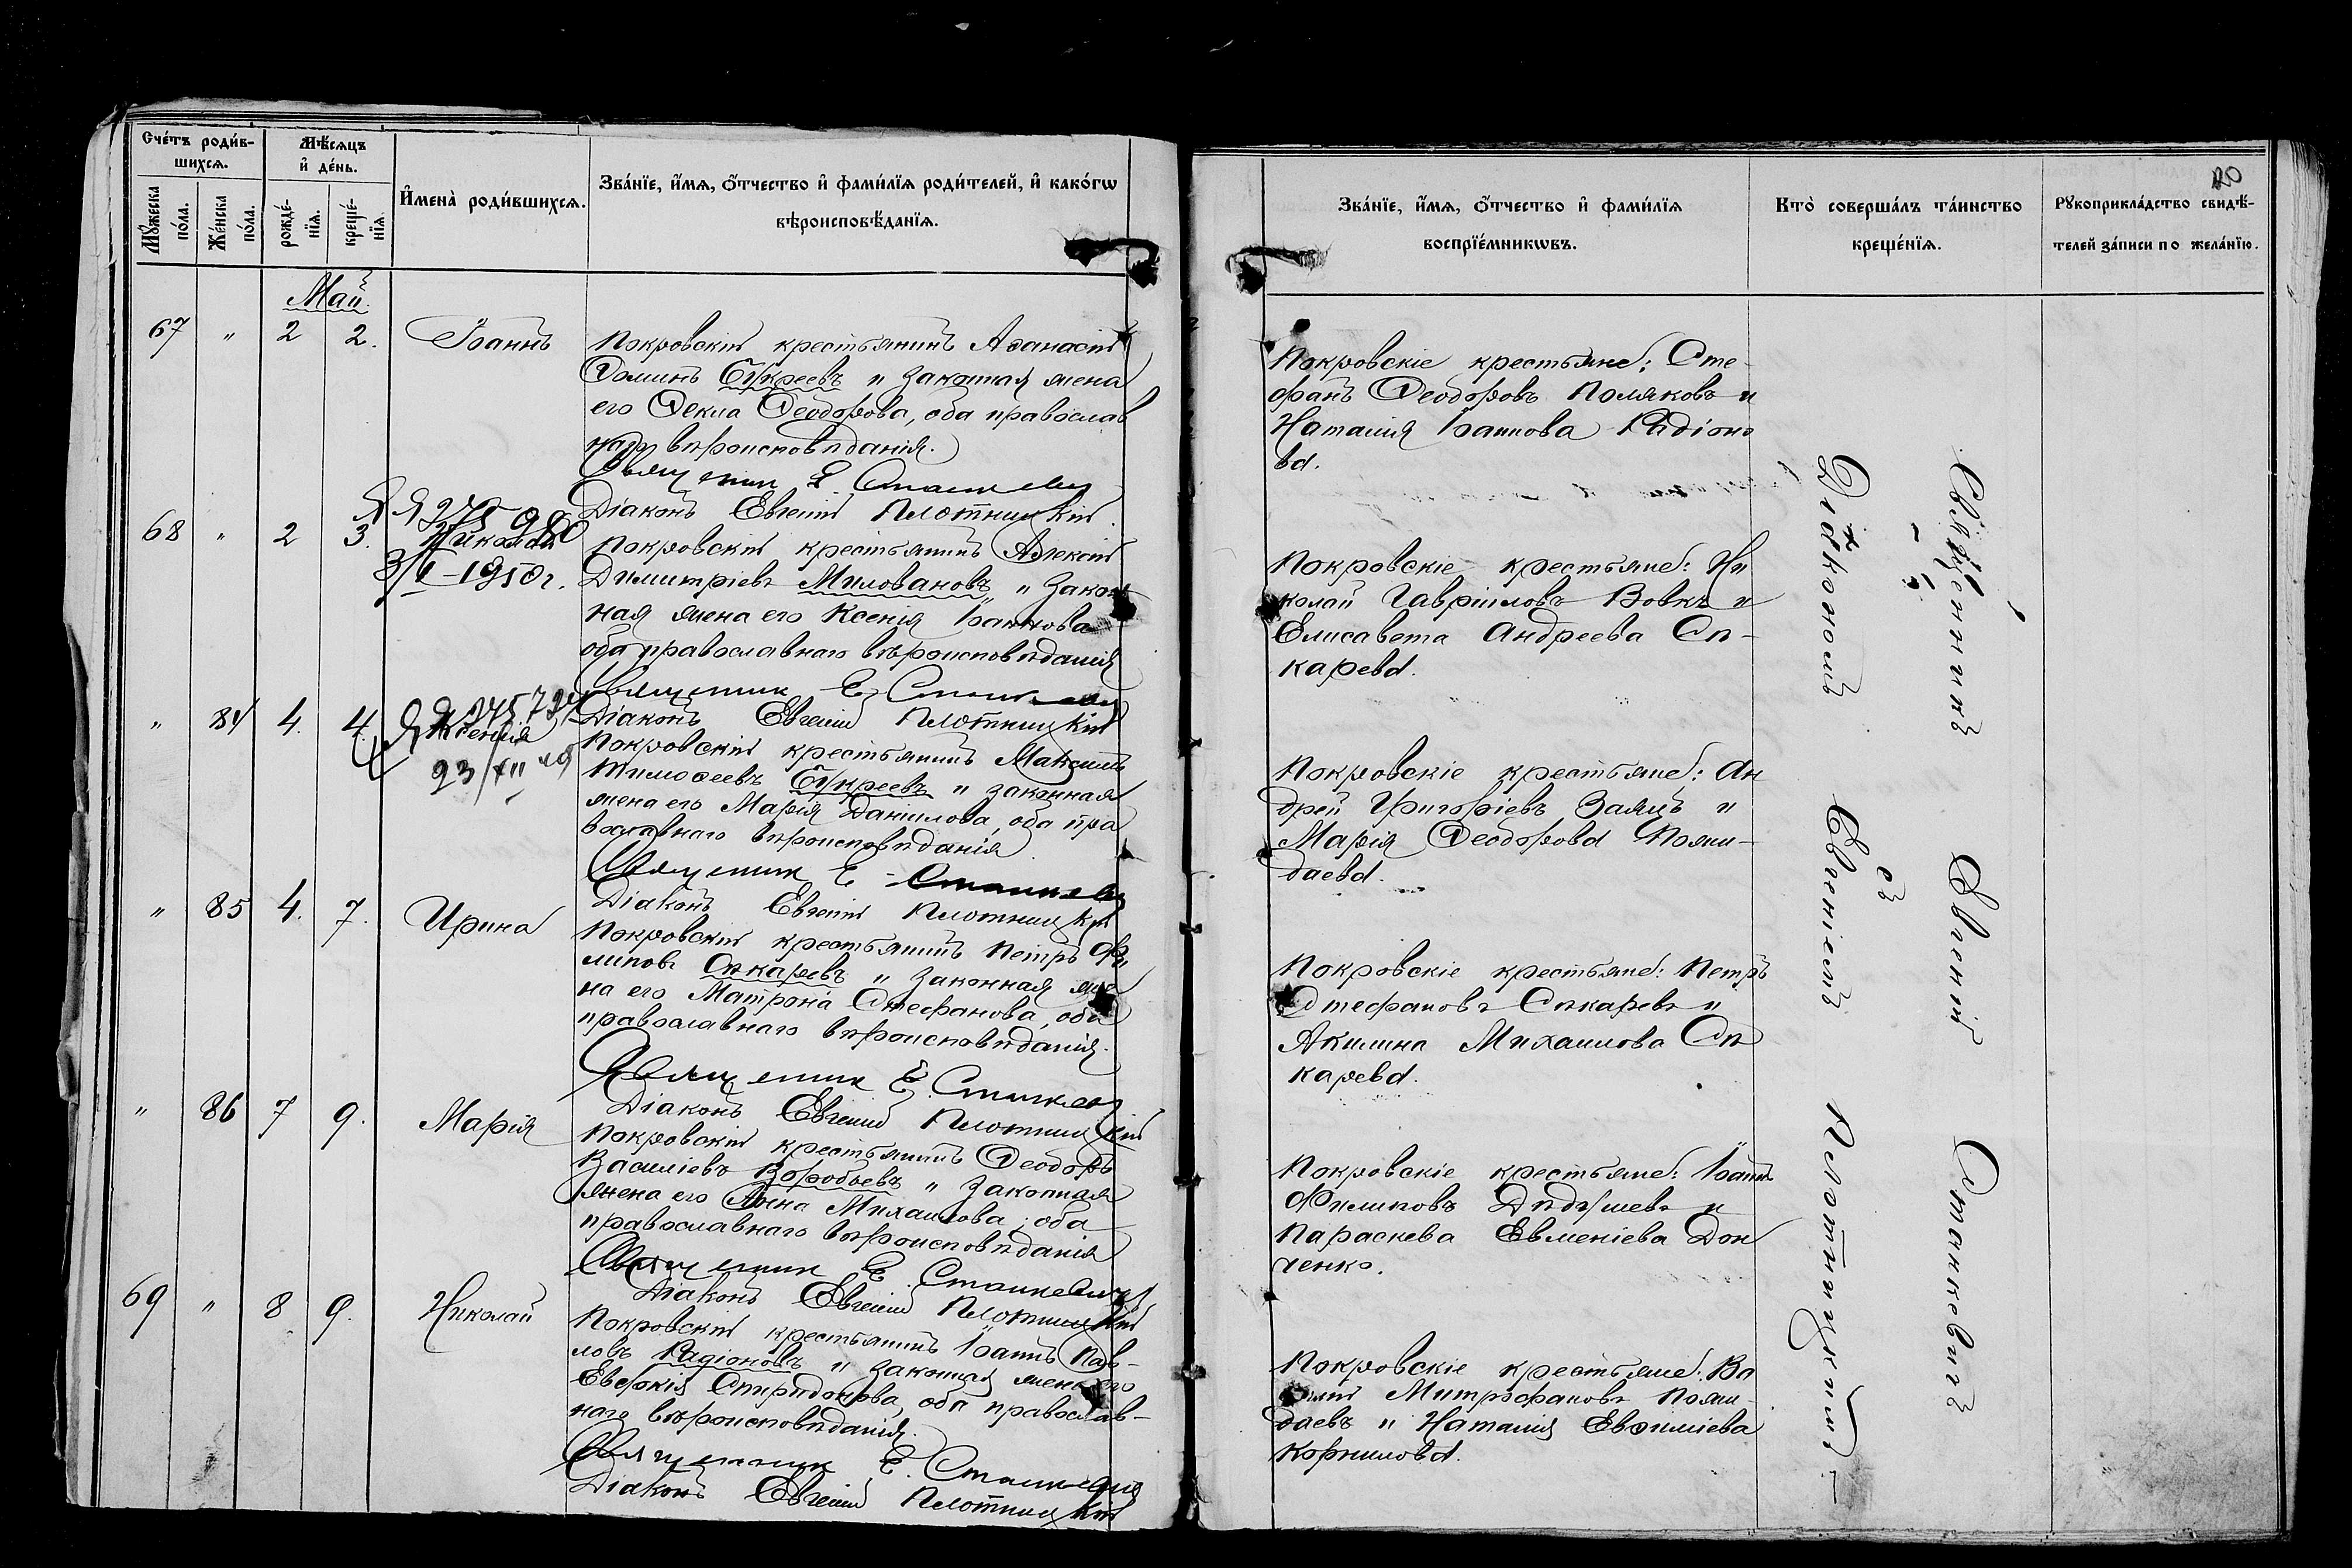 Счетъ родив-
шихся.
Мѣсяцъ
и день.
Имена родившихся.
Званїе, имя, отчество и фамилїя родителей, и какогѡ
вѣроисповѣданїя.
Мужеска
пола.
Женска
пола.
рожде-
нїя.
креще-
нїя.
Май
67 " 2 2. Іоаннъ
Покровскій крестьянинъ Аѳанасій
Ѳоминъ и законная жена
его Ѳекла Ѳеодорова, оба православ
наго вѣроисповѣданія.
Священник Е. Станкевич
Діаконъ Евгеній Плотницкій.
ЯЯ 275980
68 " 2 3. Николай
3/I-1950г.
Покровскій крестьянинъ Алексій
Димитріевъ Миловановъ и закон
ная жена его Ксенія Іоаннова
оба православнаго вѣроисповѣданія
Священник Е. Станкевич
Діаконъ Евгеній Плотницкій
" 84 4. 4. Ксенія
23/XII 49
Покровскій крестьянинъ Максимъ
Тимоѳеевъ и законная
жена его Марія Даниилова, оба пра
вославнаго вѣроисповѣданія
Священник Е. Станкевич
Діаконъ Евгеній Плотницкій
" 85 4. 7. Ирина
Покровскій крестьянинъ Петръ Фи
липовъ Опкаревъ и законная же
на его Матрона Стефанова, оба
православнаго вѣроисповѣданія.
Священник Е. Станкевич
Діаконъ Евгеній Плотницкій
" 86 7 9. Марія
Покровскій крестьянинъ Ѳеодоръ
Василіевъ Воробьевъ и законная
жена его Анна Михаилова, оба
православнаго вѣроисповѣданія
Священник Е. Станкевич
Діаконъ Евгеній Плотницкій
69 " 8 9. Николай
Покровскій крестьянинъ Іоаннъ Пав-
ловъ Радіоновъ и законная жена его
Евфокія Спиридонова, оба православ-
наго вѣроисповѣданія.
Священник Е. Станкевич
Діаконъ Евгеній Плотницкій
20
Званїе, имя, отчество и фамилїя
воспрїемникѡвъ.
Кто совершалъ таинство
крещенїя.
Рукоприкладство свидѣ-
телей записи по желанїю.
Покровскіе крестьяне: Сте-
фанъ Ѳеодоровъ Поляковъ и
Наталія Іоаннова Радіоно
ва.
Покровскіе крестьяне: Ни
колай Гавріиловъ Вовкъ и
Елисавета Андреева Оп-
карева.
Покровскіе крестьяне: Ан
дрей Григоріевъ Заяцъ и
Марія Ѳеодорова Пома-
даева.
Покровскіе крестьяне: Петръ
Стефановъ Опкаревъ и
Акилина Михаилова Оп
карева.
Покровскіе крестьяне: Іоаннъ
Филиповъ и
Параскева Евменіева Дон
ченко.
Покровскіе крестьяне: Ва
силій Митрофановъ
и Наталія Евѳиміева
Корнилова.
Священникъ Евгеній Станкевичъ
съ Діакономъ Евгеніемъ Плотницкимъ